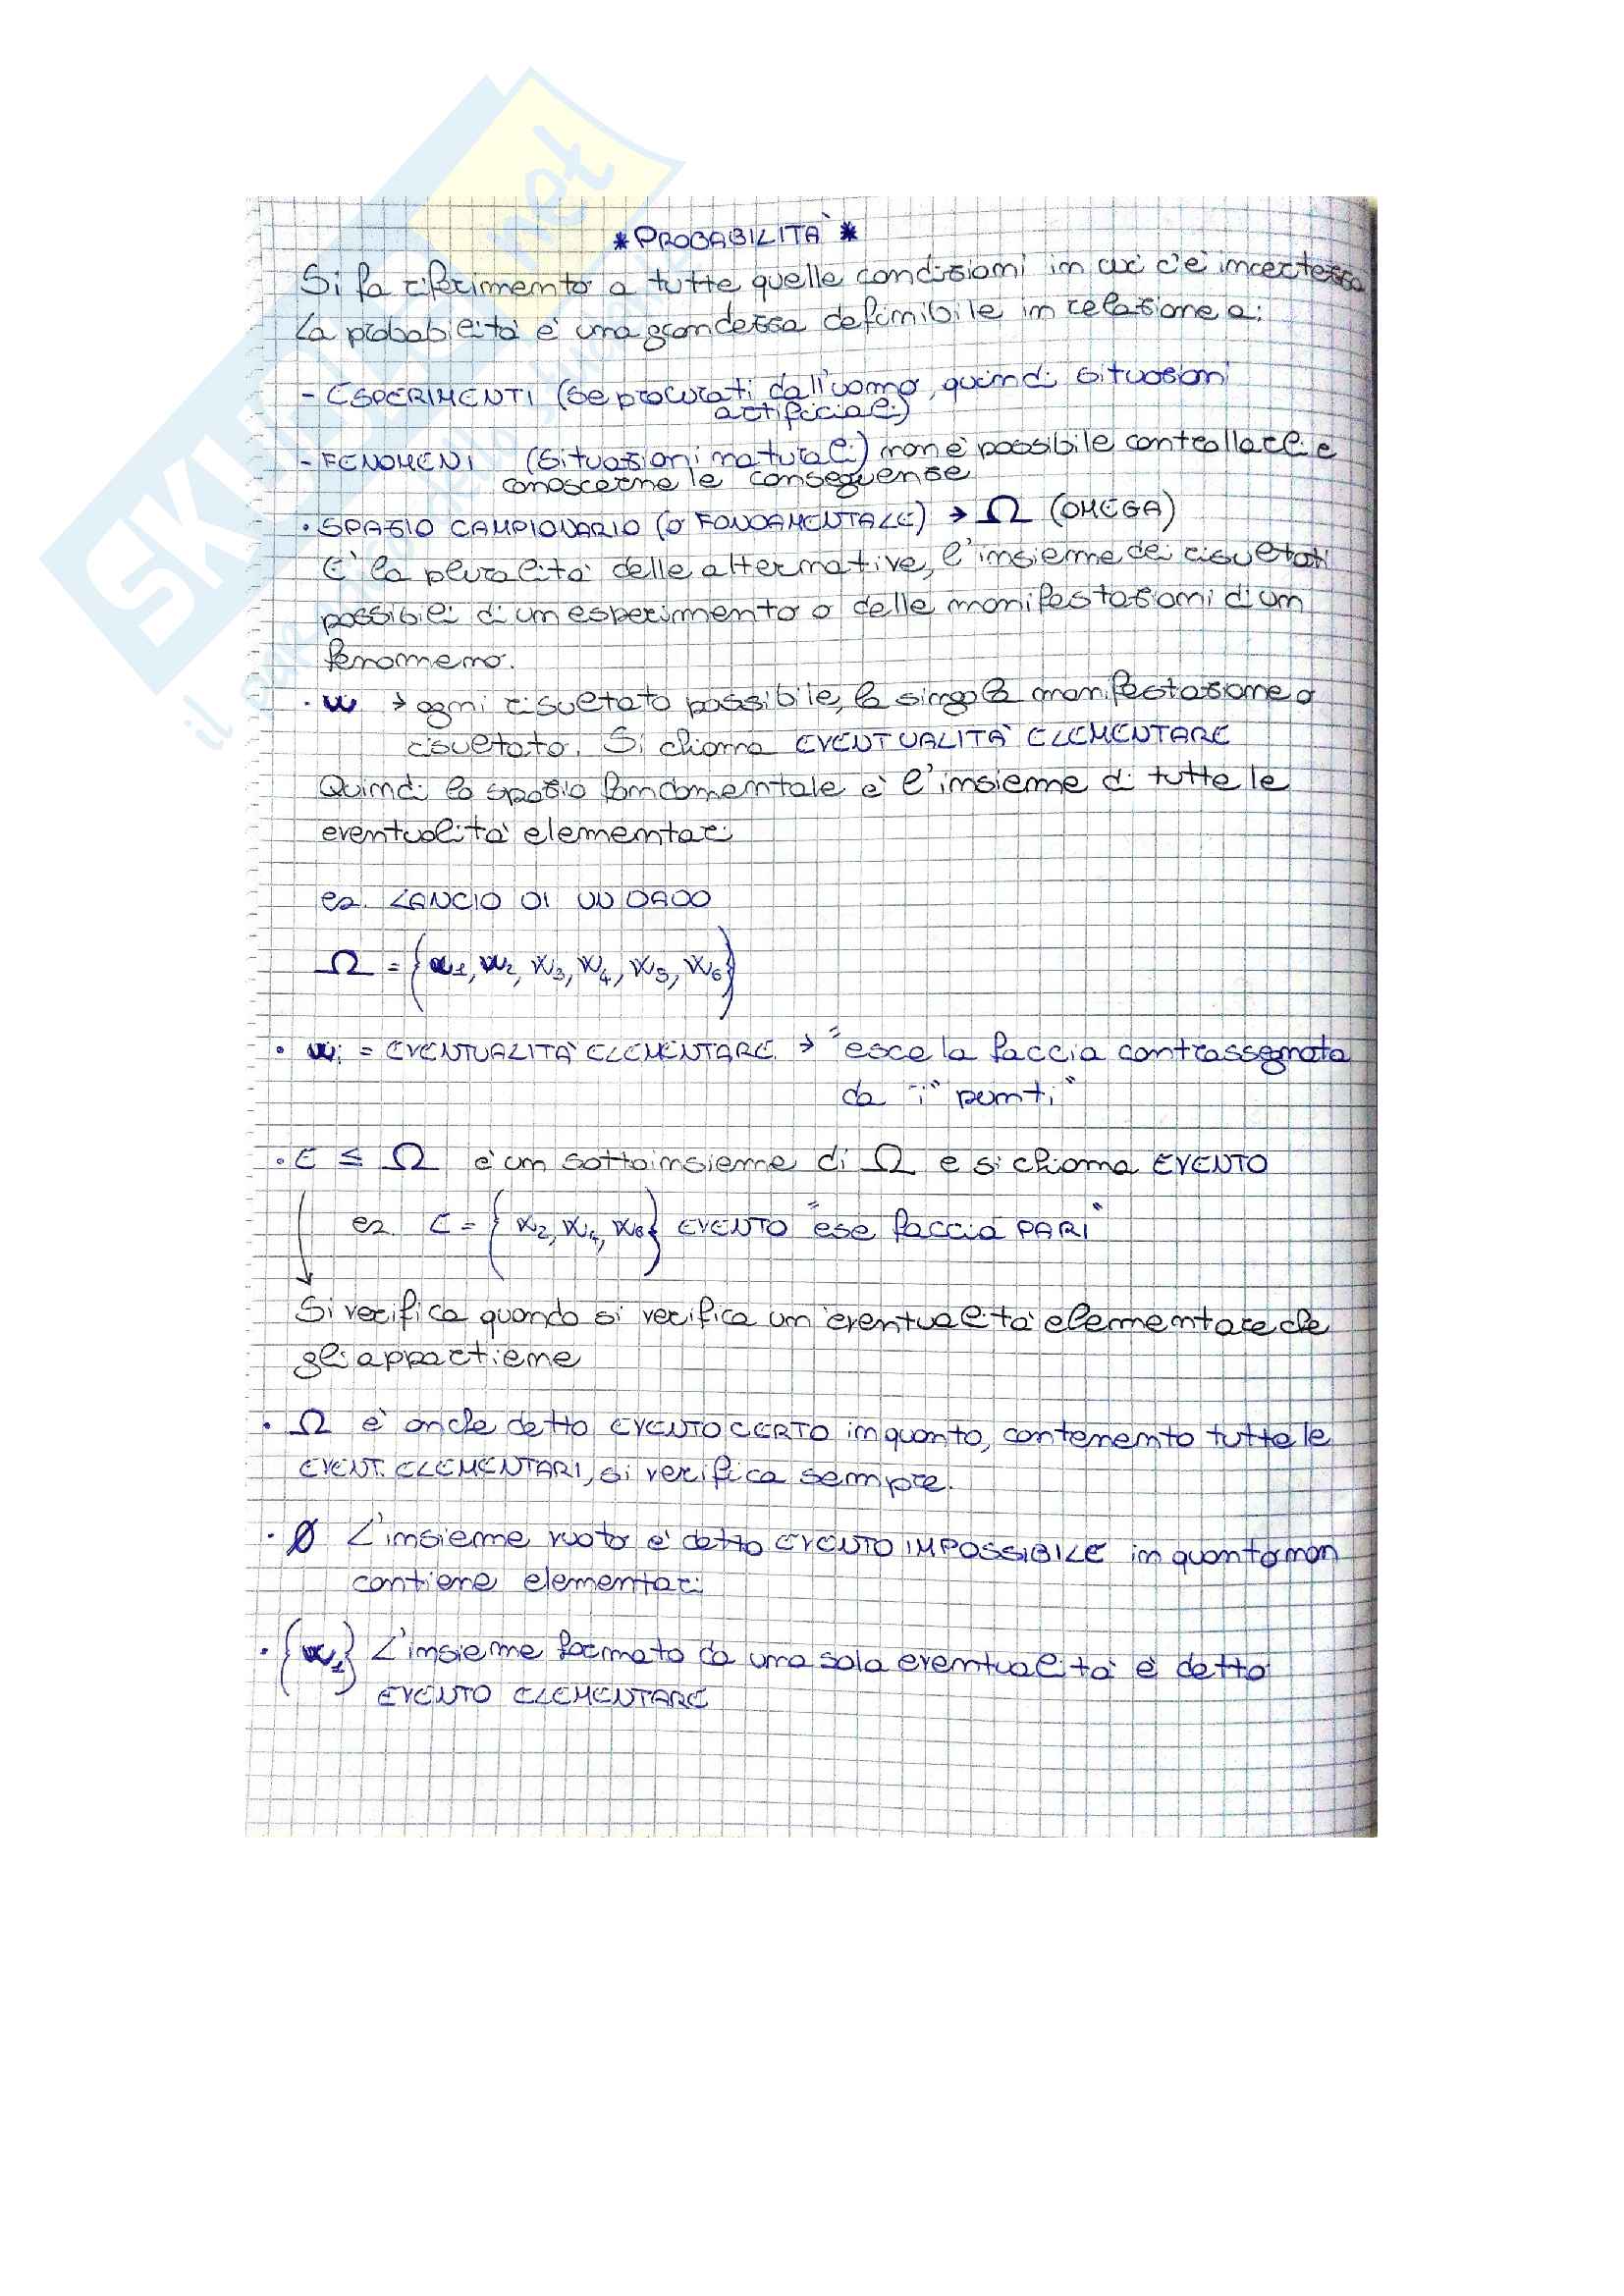 * PROBABILITÀ *
Si fa riferimento a tutte quelle condizioni in cui c'è incertezza
La probabilità è una grandezza definibile in relazione a:
- ESPERIMENTI (se procurati dall'uomo, quindi situazioni
artificiali)
- FENOMENI (situazioni naturali) non è possibile controllarli e
conoscerne le conseguenze
• SPAZIO CAMPIONARIO (o FONDAMENTALE) → Ω (OMEGA)
E' la pluralità delle alternative, l'insieme dei risultati
possibili di un esperimento o delle manifestazioni di un
fenomeno.
• w → ogni risultato possibile, la singola manifestazione o
risultato. Si chiama EVENTUALITÀ ELEMENTARE
Quindi lo spazio fondamentale è l'insieme di tutte le
eventualità elementari
es. LANCIO DI UN DADO
Ω = {w1, w2, w3, w4, w5, w6}
• wi = EVENTUALITÀ ELEMENTARE → "esce la faccia contrassegnata
da "i" punti"
• E ≤ Ω è un sottoinsieme di Ω e si chiama EVENTO
es. E = {w2, w4, w6} EVENTO "ese faccia PARI"
Si verifica quando si verifica un'eventualità elementare che
gli appartiene
• Ω è anche detto EVENTO CERTO in quanto, contenento tutte le
EVENT. ELEMENTARI, si verifica sempre.
• Ø L'insieme vuoto è detto EVENTO IMPOSSIBILE in quanto non
contiene elementari
• {w1} L'insieme formato da una sola eventualità è detto
EVENTO ELEMENTARE
SKUOLA.net